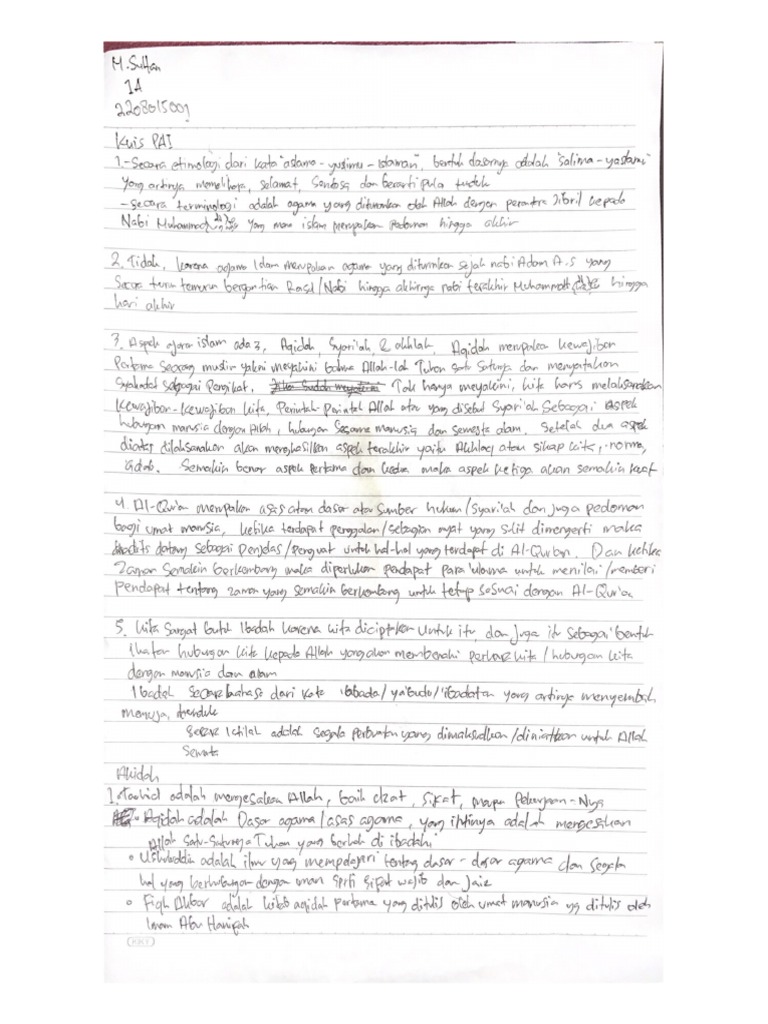 M. Sultan
1A
2208015001
Kuis PAI
1. - Secara etimologi dari kata "aslama - yuslimu - islaman", bentuk dasarnya adalah "salima - yaslamu"
yang artinya memelihara, selamat, Sentosa dan berarti pula tunduk
- secara terminologi adalah agama yang diturunkan oleh Allah dengan perantara Jibril kepada
Nabi Muhammad ﷺ yang mana islam merupakan Pedoman hingga akhir
2. Tidak, karena agama Islam merupakan agama yang diturunkan sejak nabi Adam A.S yang
Secara turun temurun bergantian Rasul/Nabi hingga akhirnya nabi terakhir Muhammad ﷺ hingga
hari akhir
3. Aspek ajaran islam ada 3, Aqidah, Syari'ah, & akhlak. Aqidah merupakan kewajiban
Pertama Seorang muslim yakni meyakini bahwa Allah-lah Tuhan satu satunya dan menyatakan
Syahadat sebagai Pengikat. Tak hanya meyakini, kita harus melaksanakan
Kewajiban-kewajiban kita, Perintah-perintah Allah atau yang disebut Syari'ah Sebagai aspek
hubungan manusia dengan Allah, hubungan sesama manusia dan semesta alam. Setelah dua aspek
diatas dilaksanakan akan menghasilkan aspek terakhir yaitu Akhlaq atau sikap kita, norma,
adab. Semakin benar aspek pertama dan kedua maka aspek ketiga akan semakin kuat
4. Al-Qur'an merupakan asas atau dasar atau sumber hukum/syari'ah dan juga pedoman
bagi umat manusia, ketika terdapat penggalan/sebagian ayat yang sulit dimengerti maka
hadits datang sebagai Penjelas/penguat untuk hal-hal yang terdapat di Al-Qur'an. Dan ketika
Zaman Semakin berkembang maka diperlukan pendapat para 'ulama untuk menilai/memberi
pendapat tentang zaman yang semakin berkembang untuk tetap sesuai dengan Al-Qur'an
5. Kita Sangat butuh Ibadah karena kita diciptakan untuk itu, dan juga itu sebagai bentuk
Ikatan hubungan kita kepada Allah yang akan membenahi perkara kita / hubungan kita
dengan manusia dan alam
Ibadah Secara bahasa dari kata 'ibbada/ya'budu/'ibadatan yang artinya menyembah
memuja, tunduk
Secara Istilah adalah segala perbuatan yang dimaksudkan/diniatkan untuk Allah
Semata
Akidah
1. Tauhid adalah mengesakan Allah, baik dzat, sifat, maupun Pekerjaan-Nya
• Aqidah adalah Dasar agama/asas agama, yang intinya adalah mengesakan
Allah Satu-Satunya Tuhan yang berhak di ibadahi
• Ushuluddin adalah ilmu yang mempelajari tentang dasar-dasar agama dan segala
hal yang berhubungan dengan iman seperti sifat wajib dan Jaiz
• Fiqh Akbar adalah kitab aqidah pertama yang ditulis oleh umat manusia yg ditulis oleh
Imam Abu Hanifah
KKY